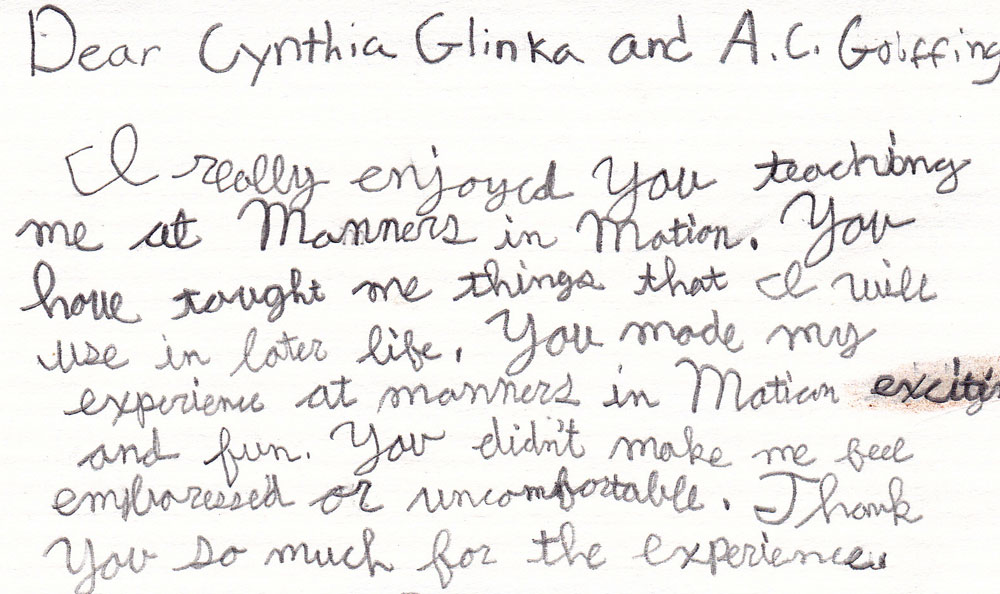 Dear Cynthia Glinka and A.C. Griffing
I really enjoyed You teaching
me at Manners in Motion. You
have taught me things that I will
use in later life. You made my
experience at manners in Motion exciti
and fun. You didn't make me feel
embaressed or uncomfortable. Thank
You so much for the experience.